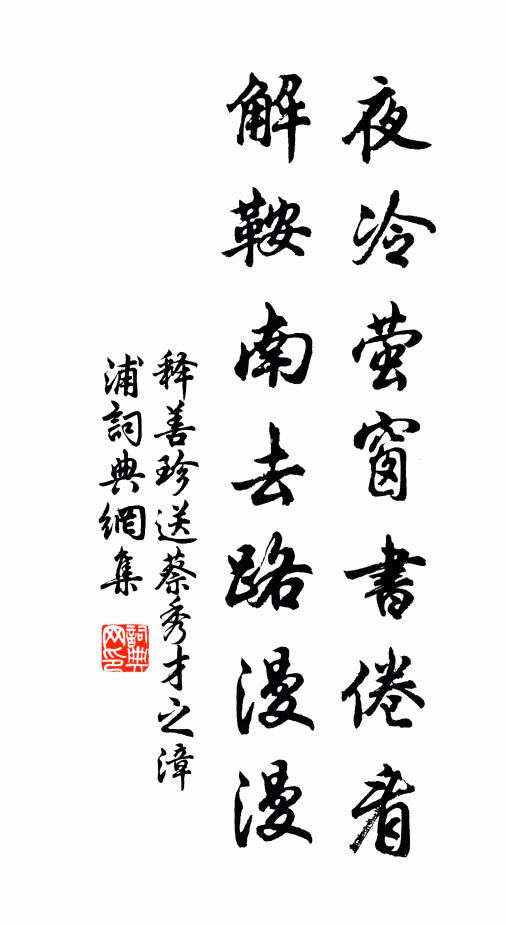 夜冷萤窗書倦看
解鞍南去路漫漫
释善珍送蔡秀才之漳
浦詞典網集
詞典
网印